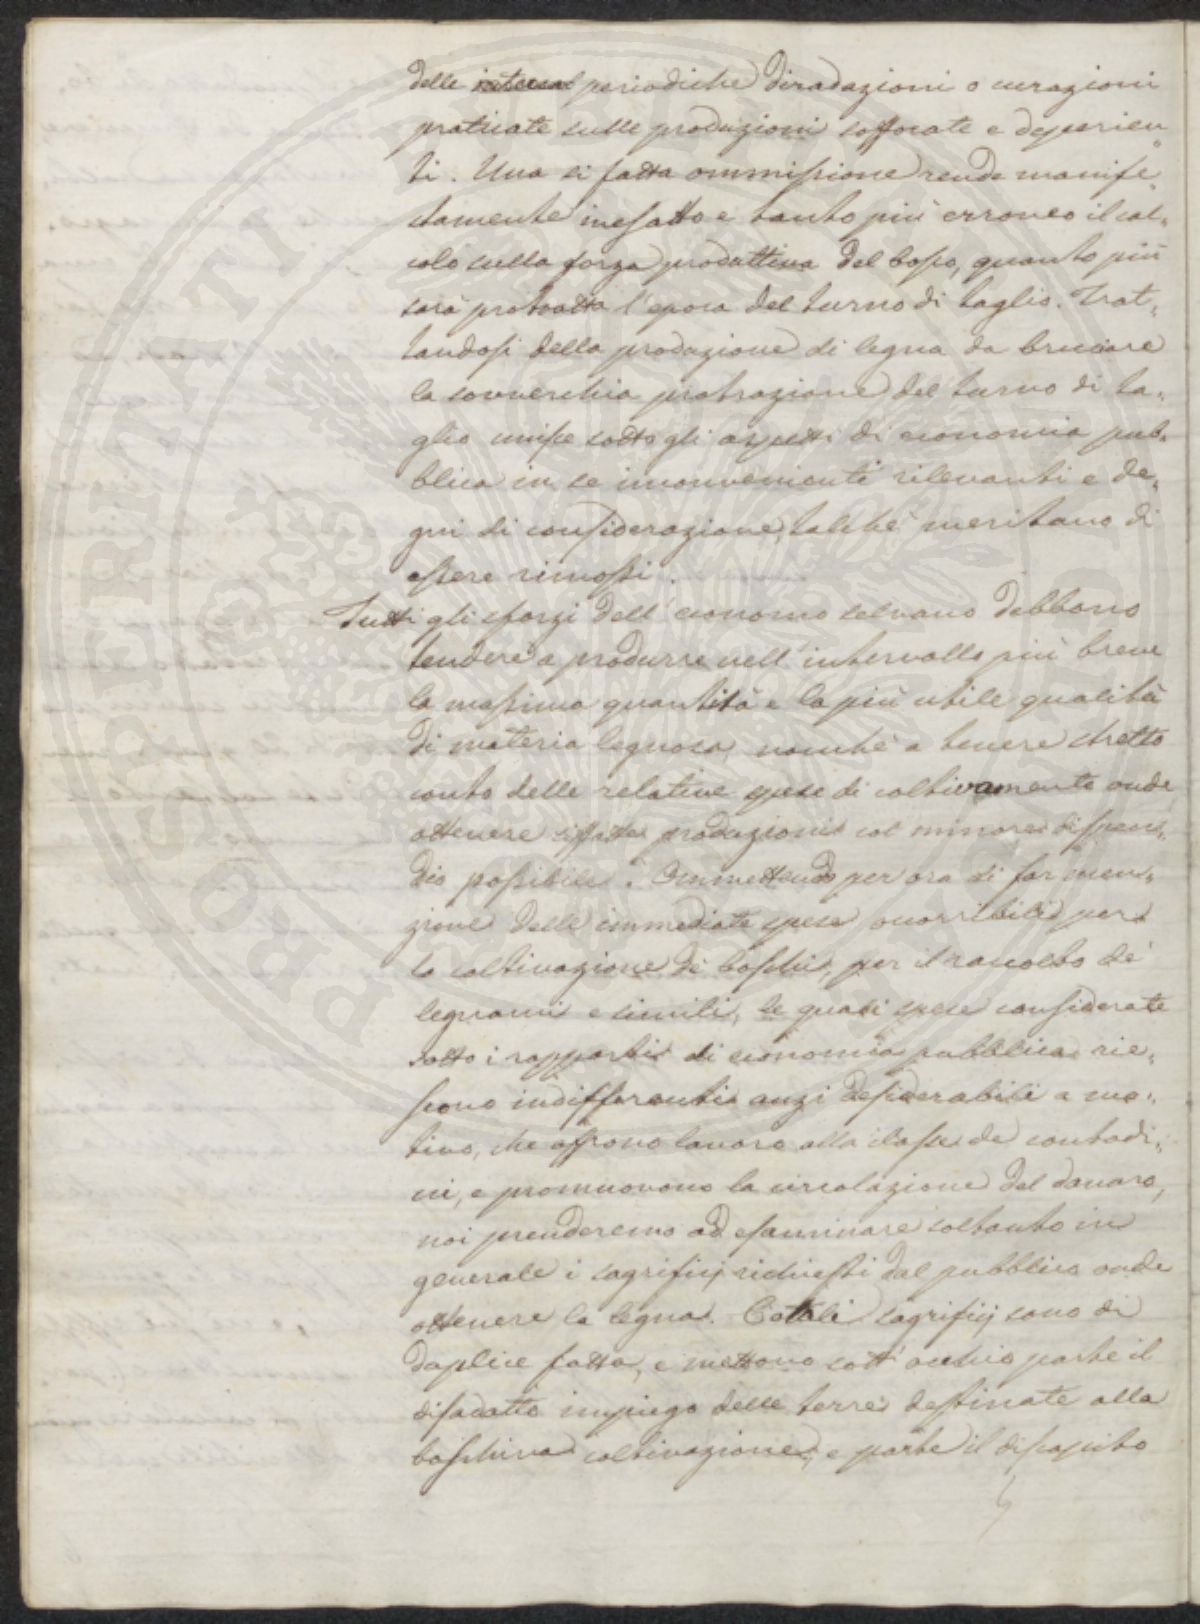 delle periodiche diradazioni o curazioni
praticate sulle produzioni soffocate e deperien
ti. Una sì fatta ommissione rende manife„
stamente inesatto e tanto più erroneo il cal„
colo sulla forza produttiva del bosco, quanto più
sarà protratta l'epoca del turno di taglio. Trat„
tandosi della produzione di legna da bruciare
la sovverchia protrazione del turno di ta„
glio unisce sotto gli aspetti di economia pub„
blica in se inconvenienti rilevanti e de„
gni di considerazione, talchè meritano di
essere rimossi.
Tutti gli sforzi dell'economo selvano debbono
tendere a produrre nell'intervallo più breve
la massima quantità e la più utile qualità
di materia legnosa, nonchè a tenere stretto
conto delle relative spese di coltivamento onde
ottenere siffatte produzioni col minore dispen„
dio possibile. Ommettendo per ora di far men„
zione delle immediate spese occorribili per
la coltivazione de' boschi, per il raccolto de'
legnami e simili, le quali spese considerate
sotto i rapporti di economia pubblica rie„
scono indifferenti anzi desiderabili a mo„
tivo, che offrono lavoro alla classe de' contadi„
ni, e promuovono la circolazione del danaro,
noi prenderemo ad esaminare soltanto in
generale i sagrifizj richiesti dal pubblico onde
ottenere la legna. Cotali sagrifizj sono di
duplice fatta, e mettono sott'occhio parte il
disadatto impiego delle terre destinate alla
boschiva coltivazione, e parte il discapito